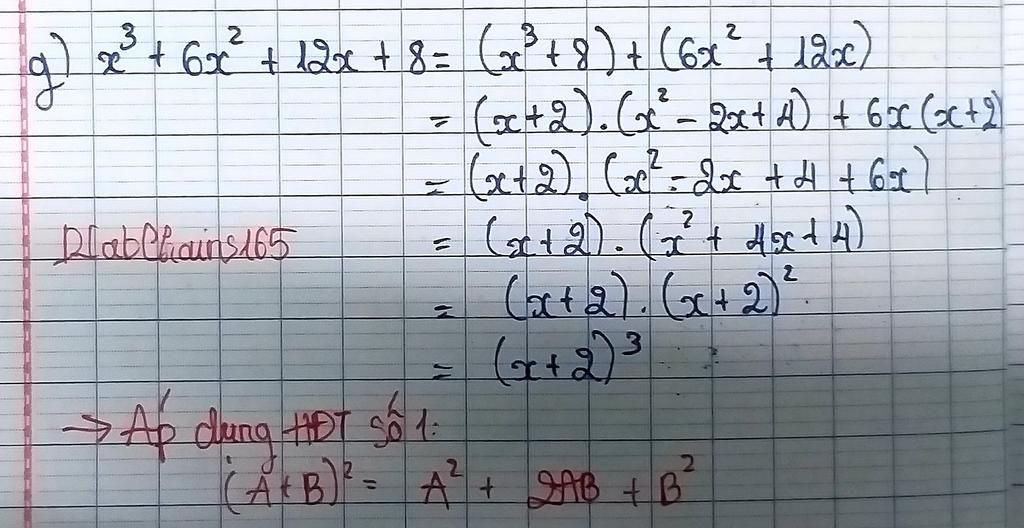 g) x³ + 6x² + 12x + 8 = (x³ + 8) + (6x² + 12x)
= (x+2).(x² - 2x + 4) + 6x(x+2)
= (x+2).(x² - 2x + 4 + 6x)
= (x+2).(x² + 4x + 4)
= (x+2).(x+2)²
= (x+2)³
→ Áp dụng HĐT số 1:
(A+B)² = A² + 2AB + B²